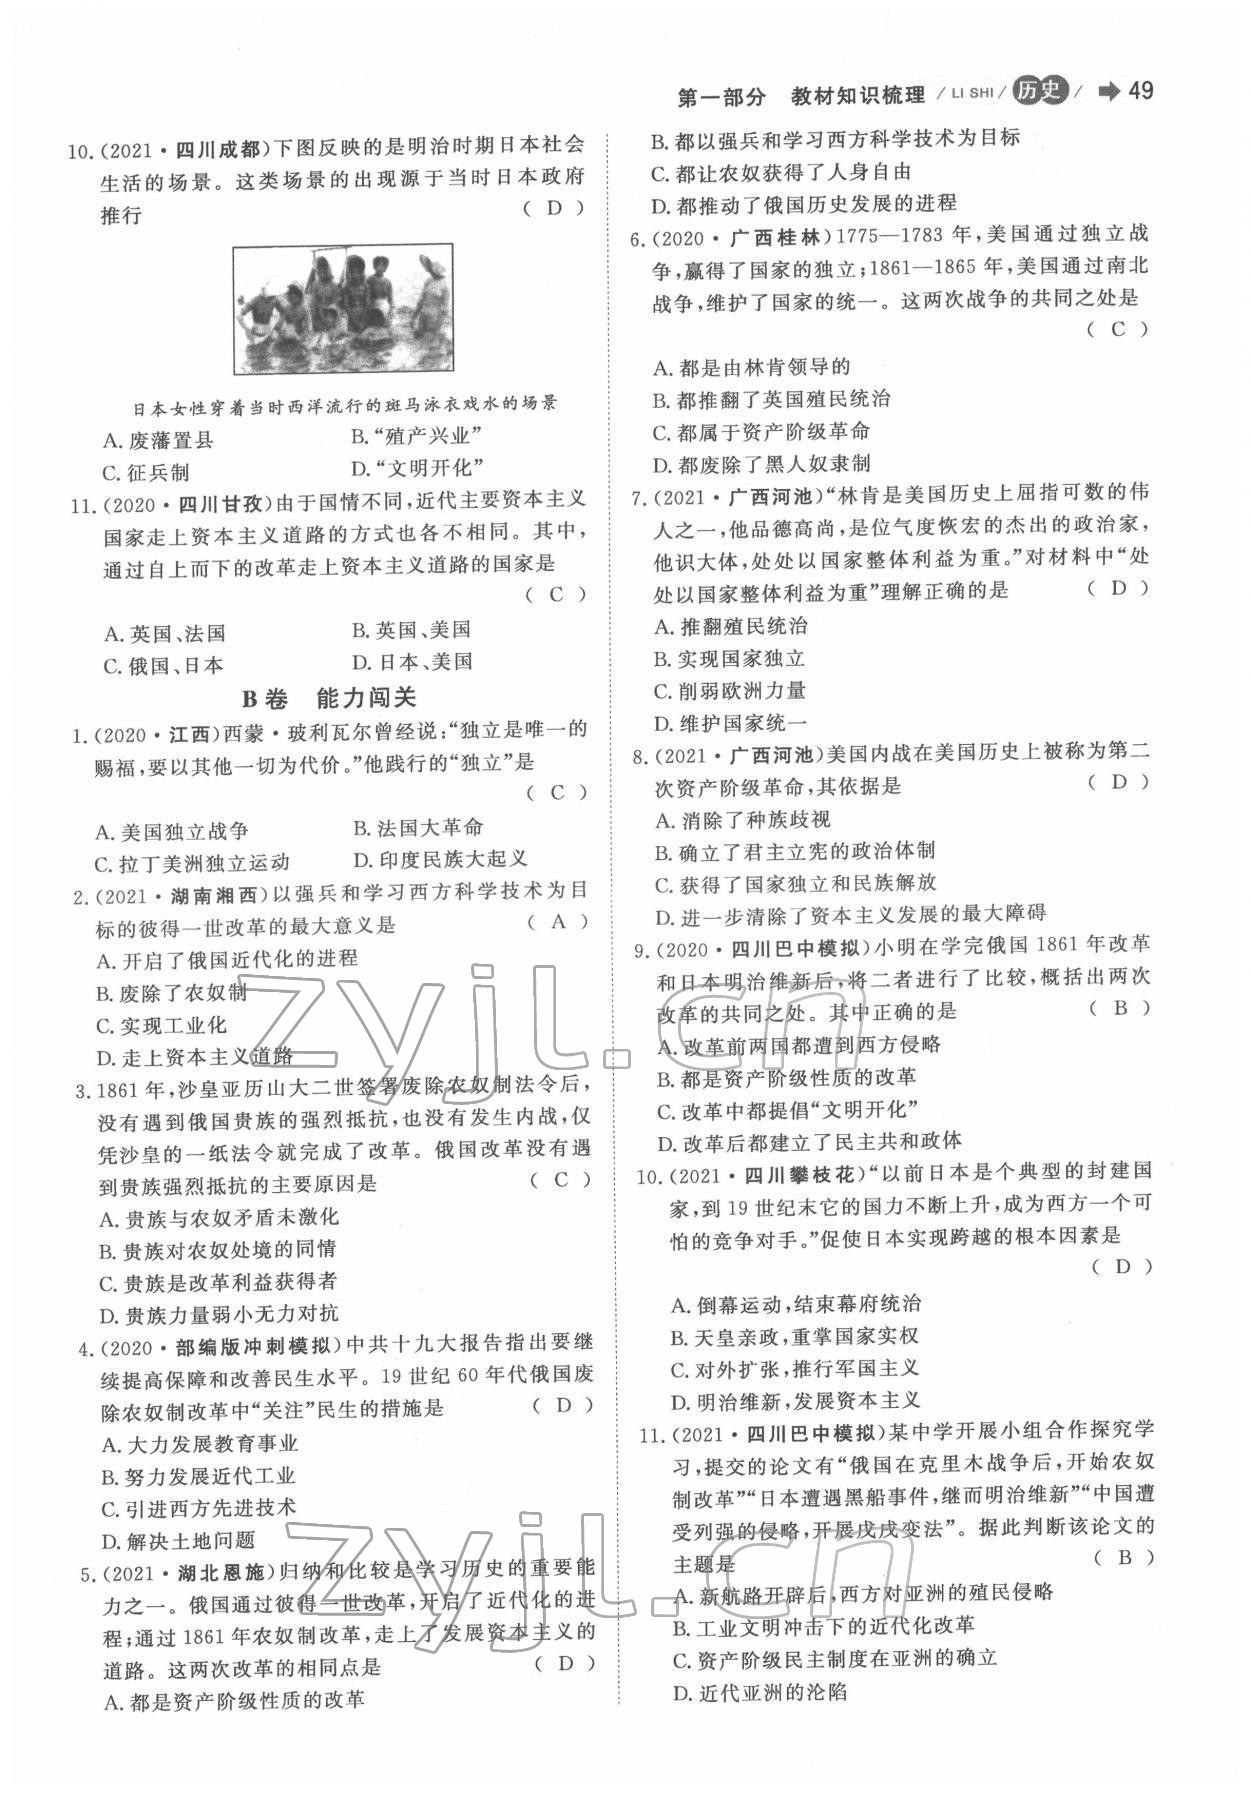 第一部分 教材知识梳理 / LI SHI / 历史 / 49
10.(2021·四川成都)下图反映的是明治时期日本社会
生活的场景。这类场景的出现源于当时日本政府
推行 ( D )
日本女性穿着当时西洋流行的斑马泳衣戏水的场景
A.废藩置县 B.“殖产兴业”
C.征兵制 D.“文明开化”
11.(2020·四川甘孜)由于国情不同,近代主要资本主义
国家走上资本主义道路的方式也各不相同。其中,
通过自上而下的改革走上资本主义道路的国家是
( C )
A.英国、法国 B.英国、美国
C.俄国、日本 D.日本、美国
B卷 能力闯关
1.(2020·江西)西蒙·玻利瓦尔曾经说:“独立是唯一的
赐福,要以其他一切为代价。”他践行的“独立”是
( C )
A.美国独立战争 B.法国大革命
C.拉丁美洲独立运动 D.印度民族大起义
2.(2021·湖南湘西)以强兵和学习西方科学技术为目
标的彼得一世改革的最大意义是 ( A )
A.开启了俄国近代化的进程
B.废除了农奴制
C.实现工业化
D.走上资本主义道路
3.1861年,沙皇亚历山大二世签署废除农奴制法令后,
没有遇到俄国贵族的强烈抵抗,也没有发生内战,仅
凭沙皇的一纸法令就完成了改革。俄国改革没有遇
到贵族强烈抵抗的主要原因是 ( C )
A.贵族与农奴矛盾未激化
B.贵族对农奴处境的同情
C.贵族是改革利益获得者
D.贵族力量弱小无力对抗
4.(2020·部编版冲刺模拟)中共十九大报告指出要继
续提高保障和改善民生水平。19世纪60年代俄国废
除农奴制改革中“关注”民生的措施是 ( D )
A.大力发展教育事业
B.努力发展近代工业
C.引进西方先进技术
D.解决土地问题
5.(2021·湖北恩施)归纳和比较是学习历史的重要能
力之一。俄国通过彼得一世改革,开启了近代化的进
程;通过1861年农奴制改革,走上了发展资本主义的
道路。这两次改革的相同点是 ( D )
A.都是资产阶级性质的改革
B.都以强兵和学习西方科学技术为目标
C.都让农奴获得了人身自由
D.都推动了俄国历史发展的进程
6.(2020·广西桂林)1775—1783年,美国通过独立战
争,赢得了国家的独立;1861—1865年,美国通过南北
战争,维护了国家的统一。这两次战争的共同之处是
( C )
A.都是由林肯领导的
B.都推翻了英国殖民统治
C.都属于资产阶级革命
D.都废除了黑人奴隶制
7.(2021·广西河池)“林肯是美国历史上屈指可数的伟
人之一,他品德高尚,是位气度恢宏的杰出的政治家,
他识大体,处处以国家整体利益为重。”对材料中“处
处以国家整体利益为重”理解正确的是 ( D )
A.推翻殖民统治
B.实现国家独立
C.削弱欧洲力量
D.维护国家统一
8.(2021·广西河池)美国内战在美国历史上被称为第二
次资产阶级革命,其依据是 ( D )
A.消除了种族歧视
B.确立了君主立宪的政治体制
C.获得了国家独立和民族解放
D.进一步清除了资本主义发展的最大障碍
9.(2020·四川巴中模拟)小明在学完俄国1861年改革
和日本明治维新后,将二者进行了比较,概括出两次
改革的共同之处。其中正确的是 ( B )
A.改革前两国都遭到西方侵略
B.都是资产阶级性质的改革
C.改革中都提倡“文明开化”
D.改革后都建立了民主共和政体
10.(2021·四川攀枝花)“以前日本是个典型的封建国
家,到19世纪末它的国力不断上升,成为西方一个可
怕的竞争对手。”促使日本实现跨越的根本因素是
( D )
A.倒幕运动,结束幕府统治
B.天皇亲政,重掌国家实权
C.对外扩张,推行军国主义
D.明治维新,发展资本主义
11.(2021·四川巴中模拟)某中学开展小组合作探究学
习,提交的论文有“俄国在克里木战争后,开始农奴
制改革”“日本遭遇黑船事件,继而明治维新”“中国遭
受列强的侵略,开展戊戌变法”。据此判断该论文的
主题是 ( B )
A.新航路开辟后,西方对亚洲的殖民侵略
B.工业文明冲击下的近代化改革
C.资产阶级民主制度在亚洲的确立
D.近代亚洲的沦陷
zyjl.cn
zyjl.cn